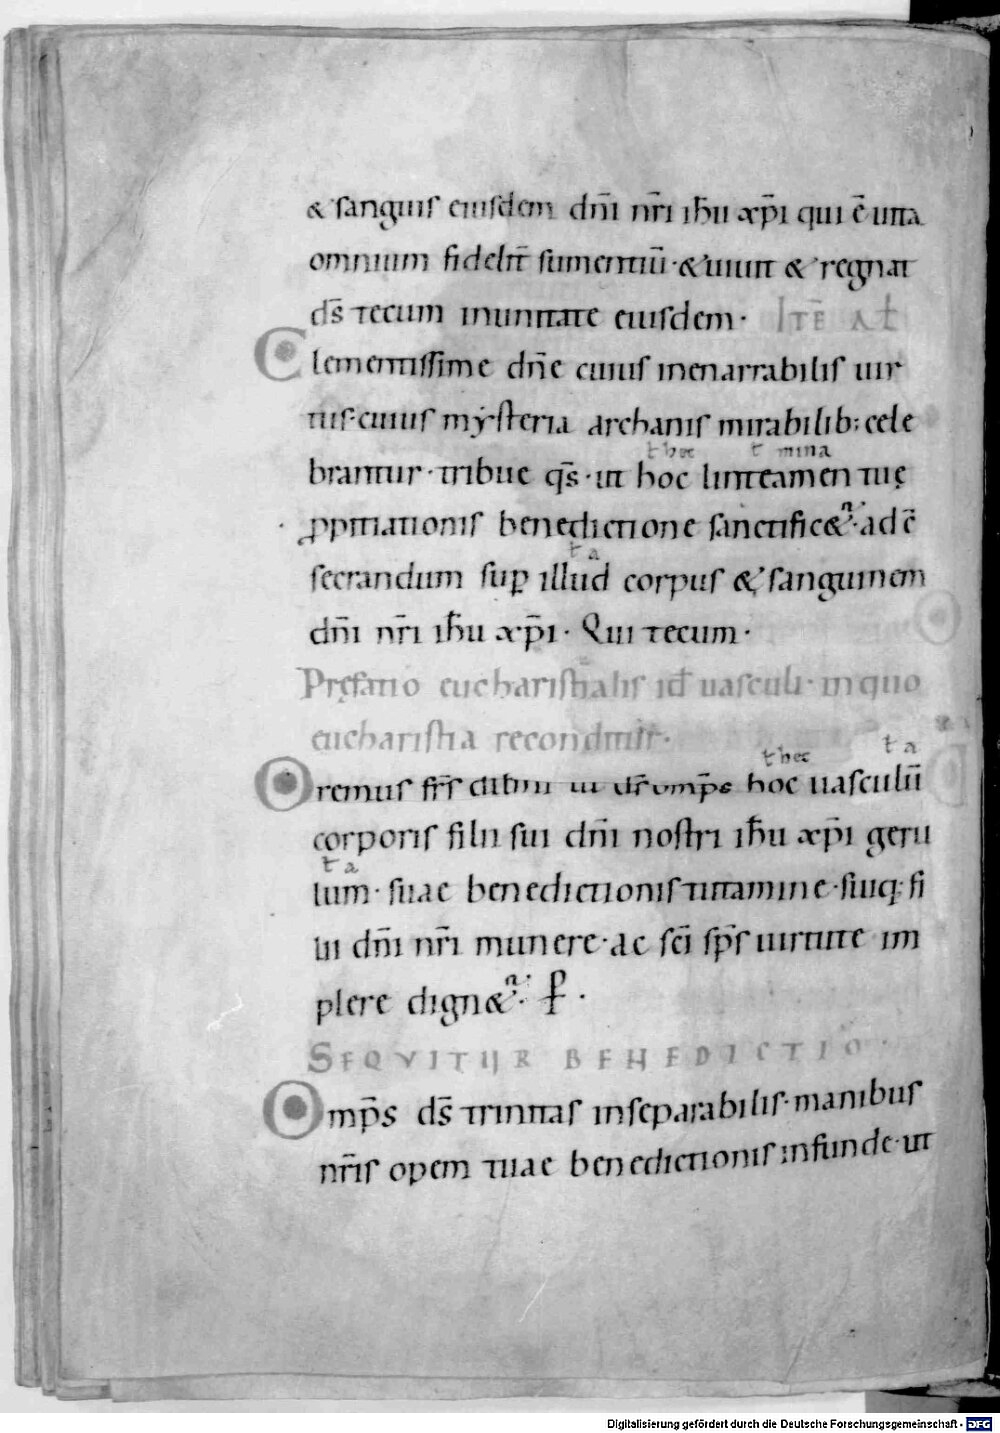 & sanguis eiusdem dn̄i nr̄i ih̄u xp̄i qui ē uita
omnium fidelit̄ sumentiū · & uiuit & regnat
ds̄ tecum inunitate eiusdem · ITĒ AŁ
Clementissime dn̄e cuius inenarrabilis uir
tus · cuius mysteria archanis mirabilib; cele
ł hec ł mina
brantur · tribue qs̄ · ut hoc linteamen tuę
ꝓpitiationis benedictione sanctific&ⁿ · ad c̄
ł a
secrandum suꝑ illud corpus & sanguinem
dn̄i nr̄i ih̄u xp̄i · Qui tecum ·
Pręfatio eucharistialis id uasculi · inquo
eucharistia reconditur ·
ł hec ł a
Oremus frs̄ ut ds̄ omp̄s hoc uasculū
corporis filii sui dn̄i nostri ih̄u xp̄i geru
ł a
lum · suae benedictionis tutamine · siuq; fi
lii dn̄i nr̄i munere · ac sc̄i sp̄s uirtute im
plere dign&ⁿ · P̄ ·
SEQVITUR BENEDICTIO ·
Omp̄s ds̄ trinitas inseparabilis · manibus
nr̄is opem tuae benedictionis infunde · ut
Digitalisierung gefördert durch die Deutsche Forschungsgemeinschaft - DFG